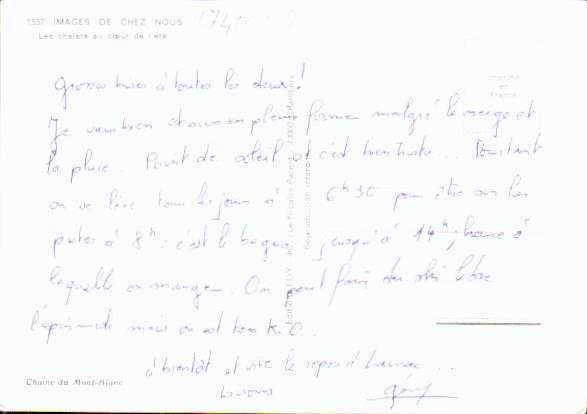 1537 IMAGES DE CHEZ NOUS
Les chalets au cœur de l'été
Grosses bises à toutes les deux!
Je vais bien et suis en pleine forme malgré la neige et
la pluie. Point de soleil et c'est bien triste... Pourtant
on se lève tous les jours à 6h30 pour être sur les
pistes à 8h : c'est le bagne jusqu'à 14h, heure à
laquelle on mange. On peut faire du ski libre
l'après midi mais on est tous K.O...
à bientôt et vive le repos à ...
bisous
Chaîne du Mont-Blanc
Imprimé
en
France
Editions EDY, rue Nicolas Parent - 73000 Chambéry
Reproduction interdite